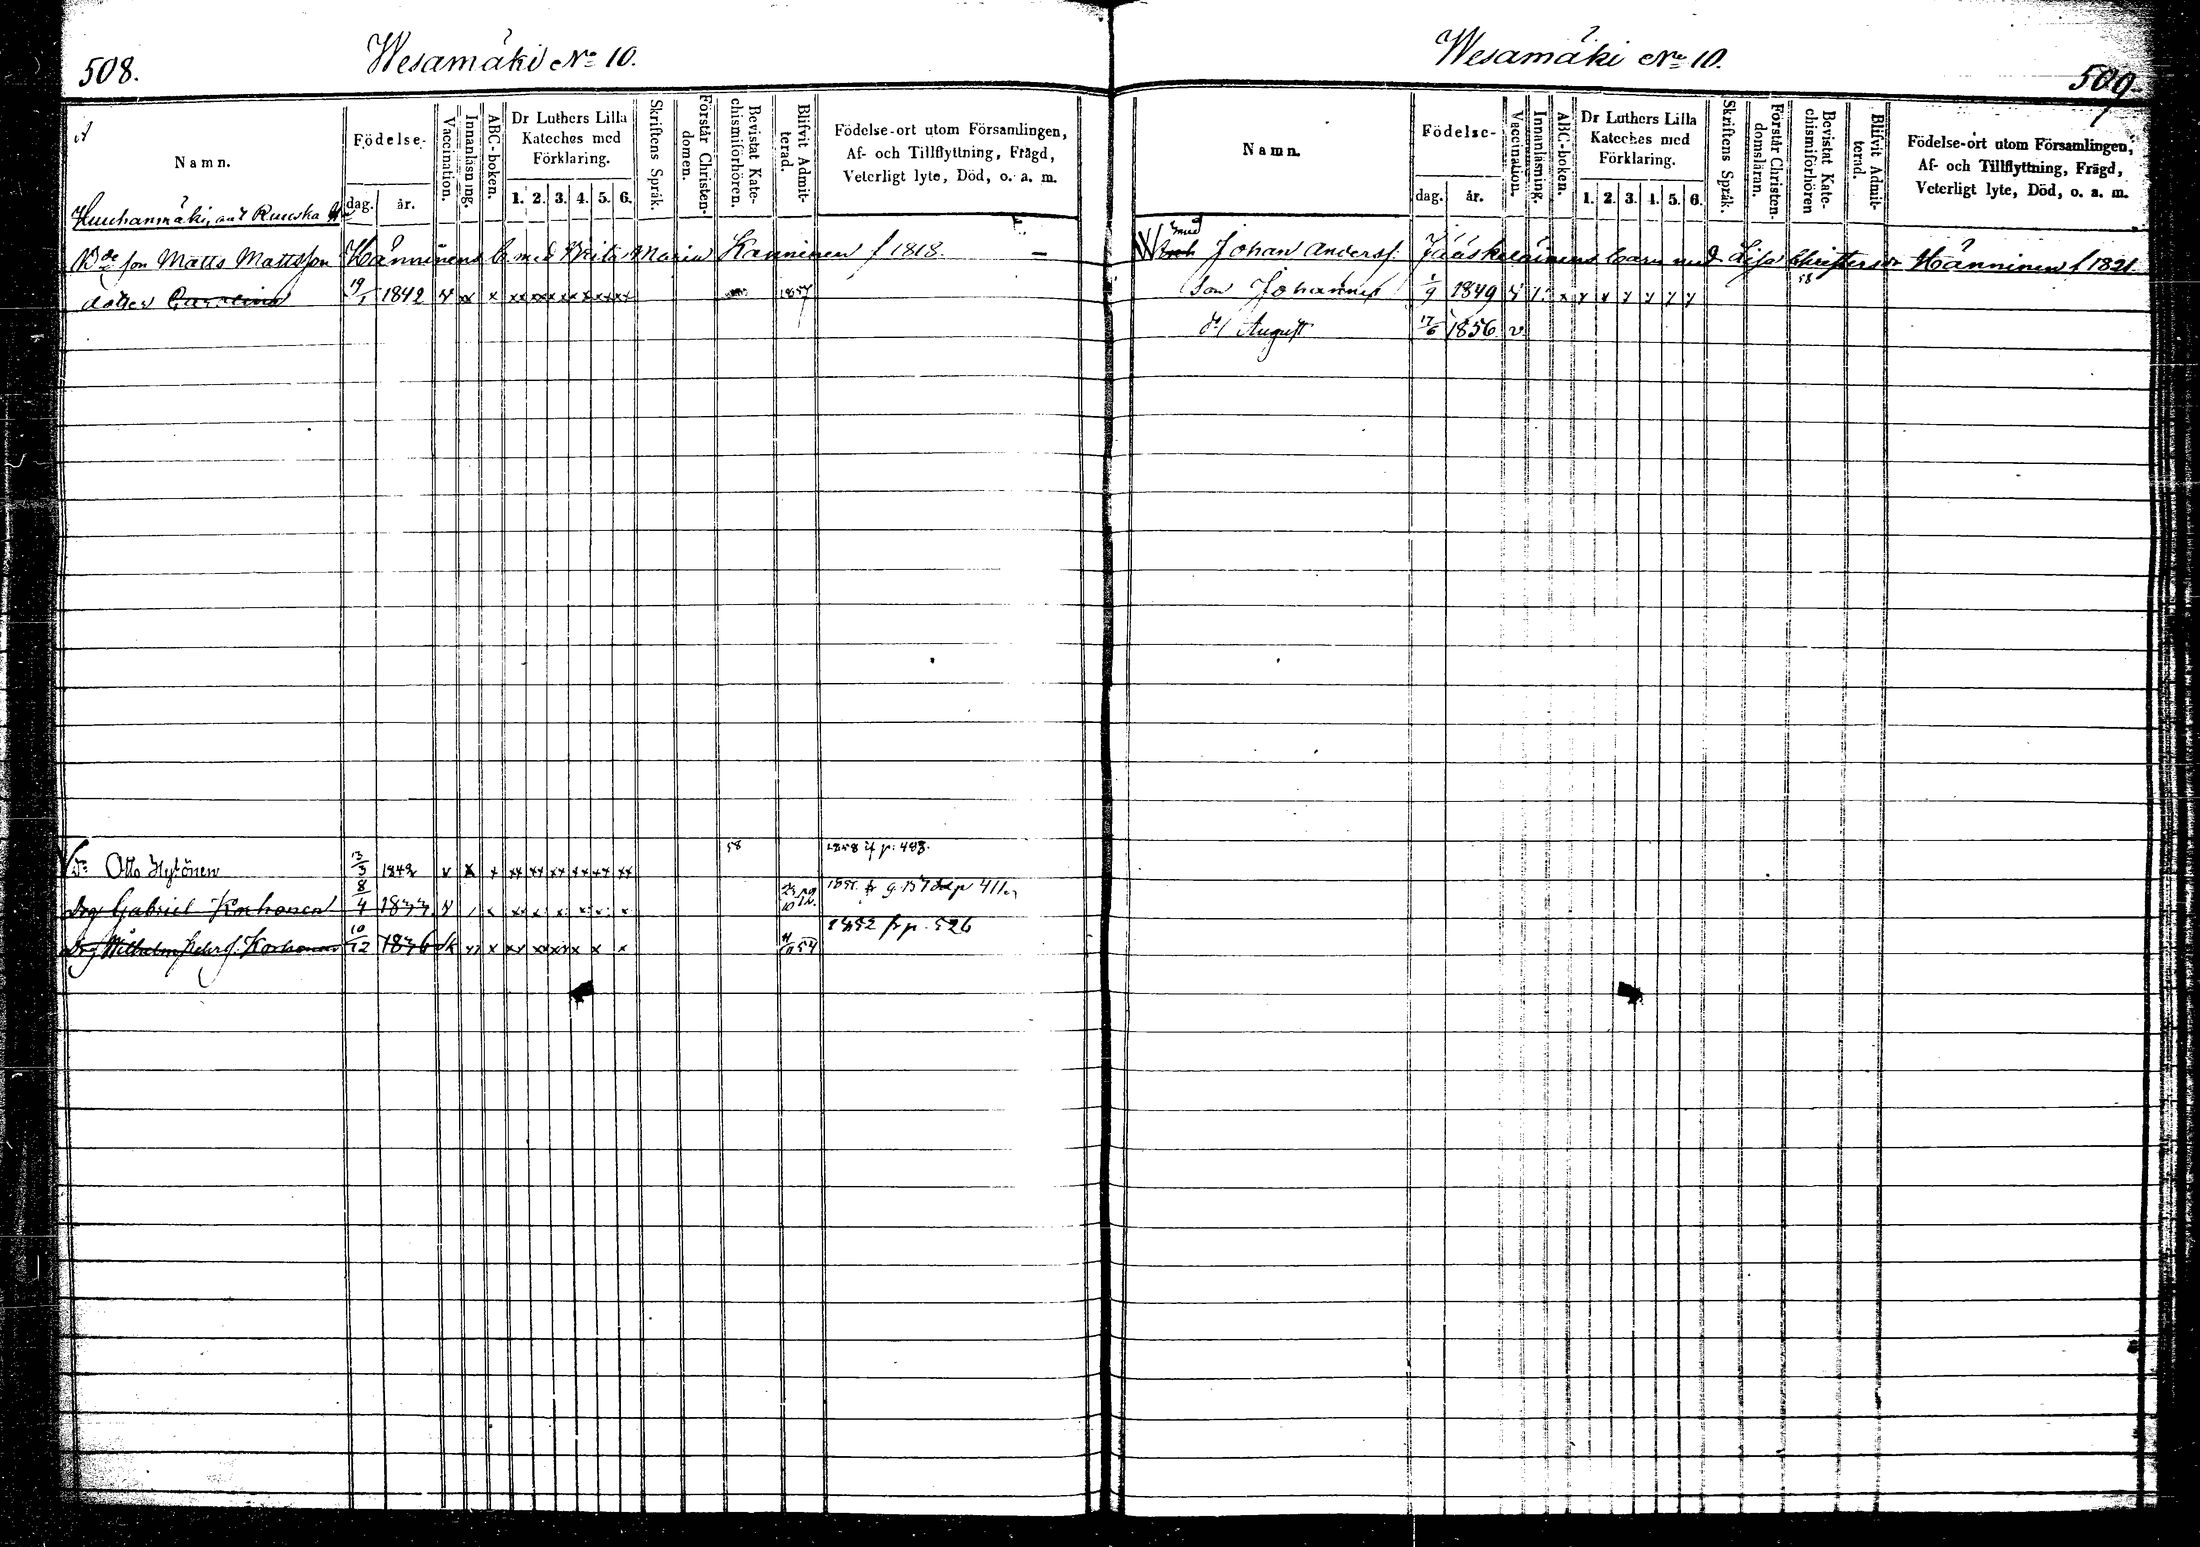 508.
Wesamäki No 10.
Namn.
Födelse-
dag. år.
Vaccination.
Innanläsning.
ABC-boken.
Dr Luthers Lilla
Kateches med
Förklaring.
1. 2. 3. 4. 5. 6.
Skriftens Språk.
Förstår Christen-
domen.
Bevistat Kate-
chismiförhören.
Blifvit Admit-
terad.
Födelse-ort utom Församlingen,
Af- och Tillflyttning, Frägd,
Veterligt lyte, Död, o. a. m.
son Matts Mattsson Hänninens b. med Brita Maria Kanninen f 1818. –
dotter Carolina 19/1 1842 v xx x xx xx xx xx xx xx 1857
Otto Hytönen 13/3 1842 v x x xx xx xx xx xx xx 58 1858 p. 483.
Drg Gabriel Korhonen 8/4
Drg Wilhelm Korhonen 10/12 1852 fr p. 526
Wesamäki No 10.
509.
Namn.
Födelse-
dag. år.
Vaccination.
Innanläsning.
ABC-boken.
Dr Luthers Lilla
Kateches med
Förklaring.
1. 2. 3. 4. 5. 6.
Skriftens Språk.
Förstår Christen-
domsläran.
Bevistat Kate-
chismiförhören
Blifvit Admit-
terad.
Födelse-ort utom Församlingen,
Af- och Tillflyttning, Frägd,
Veterligt lyte, Död, o. a. m.
Johan Anderss. Jääskeläinens barn med Lisa Christersdr Hänninen f 1821.
Son Johannes 1/9 1849 58
August 17/6 1856 v